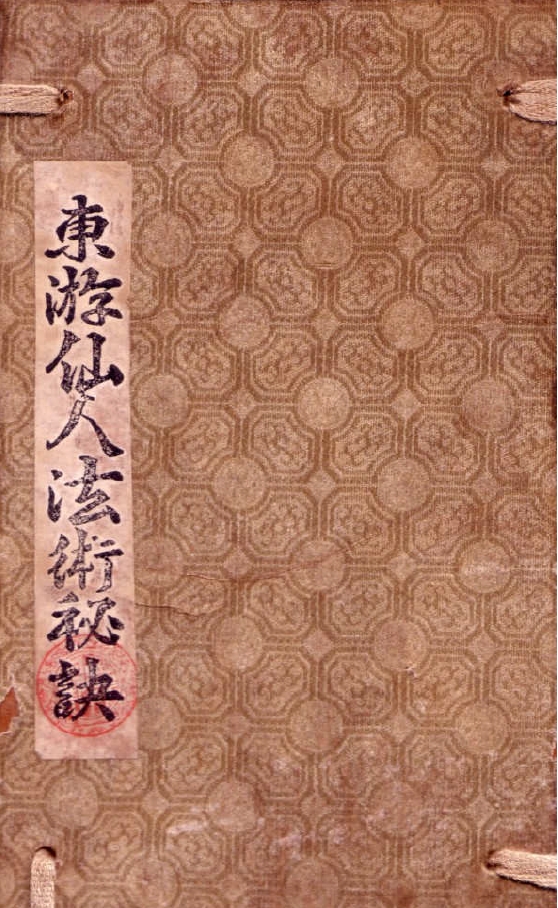 東游仙人法術祕訣